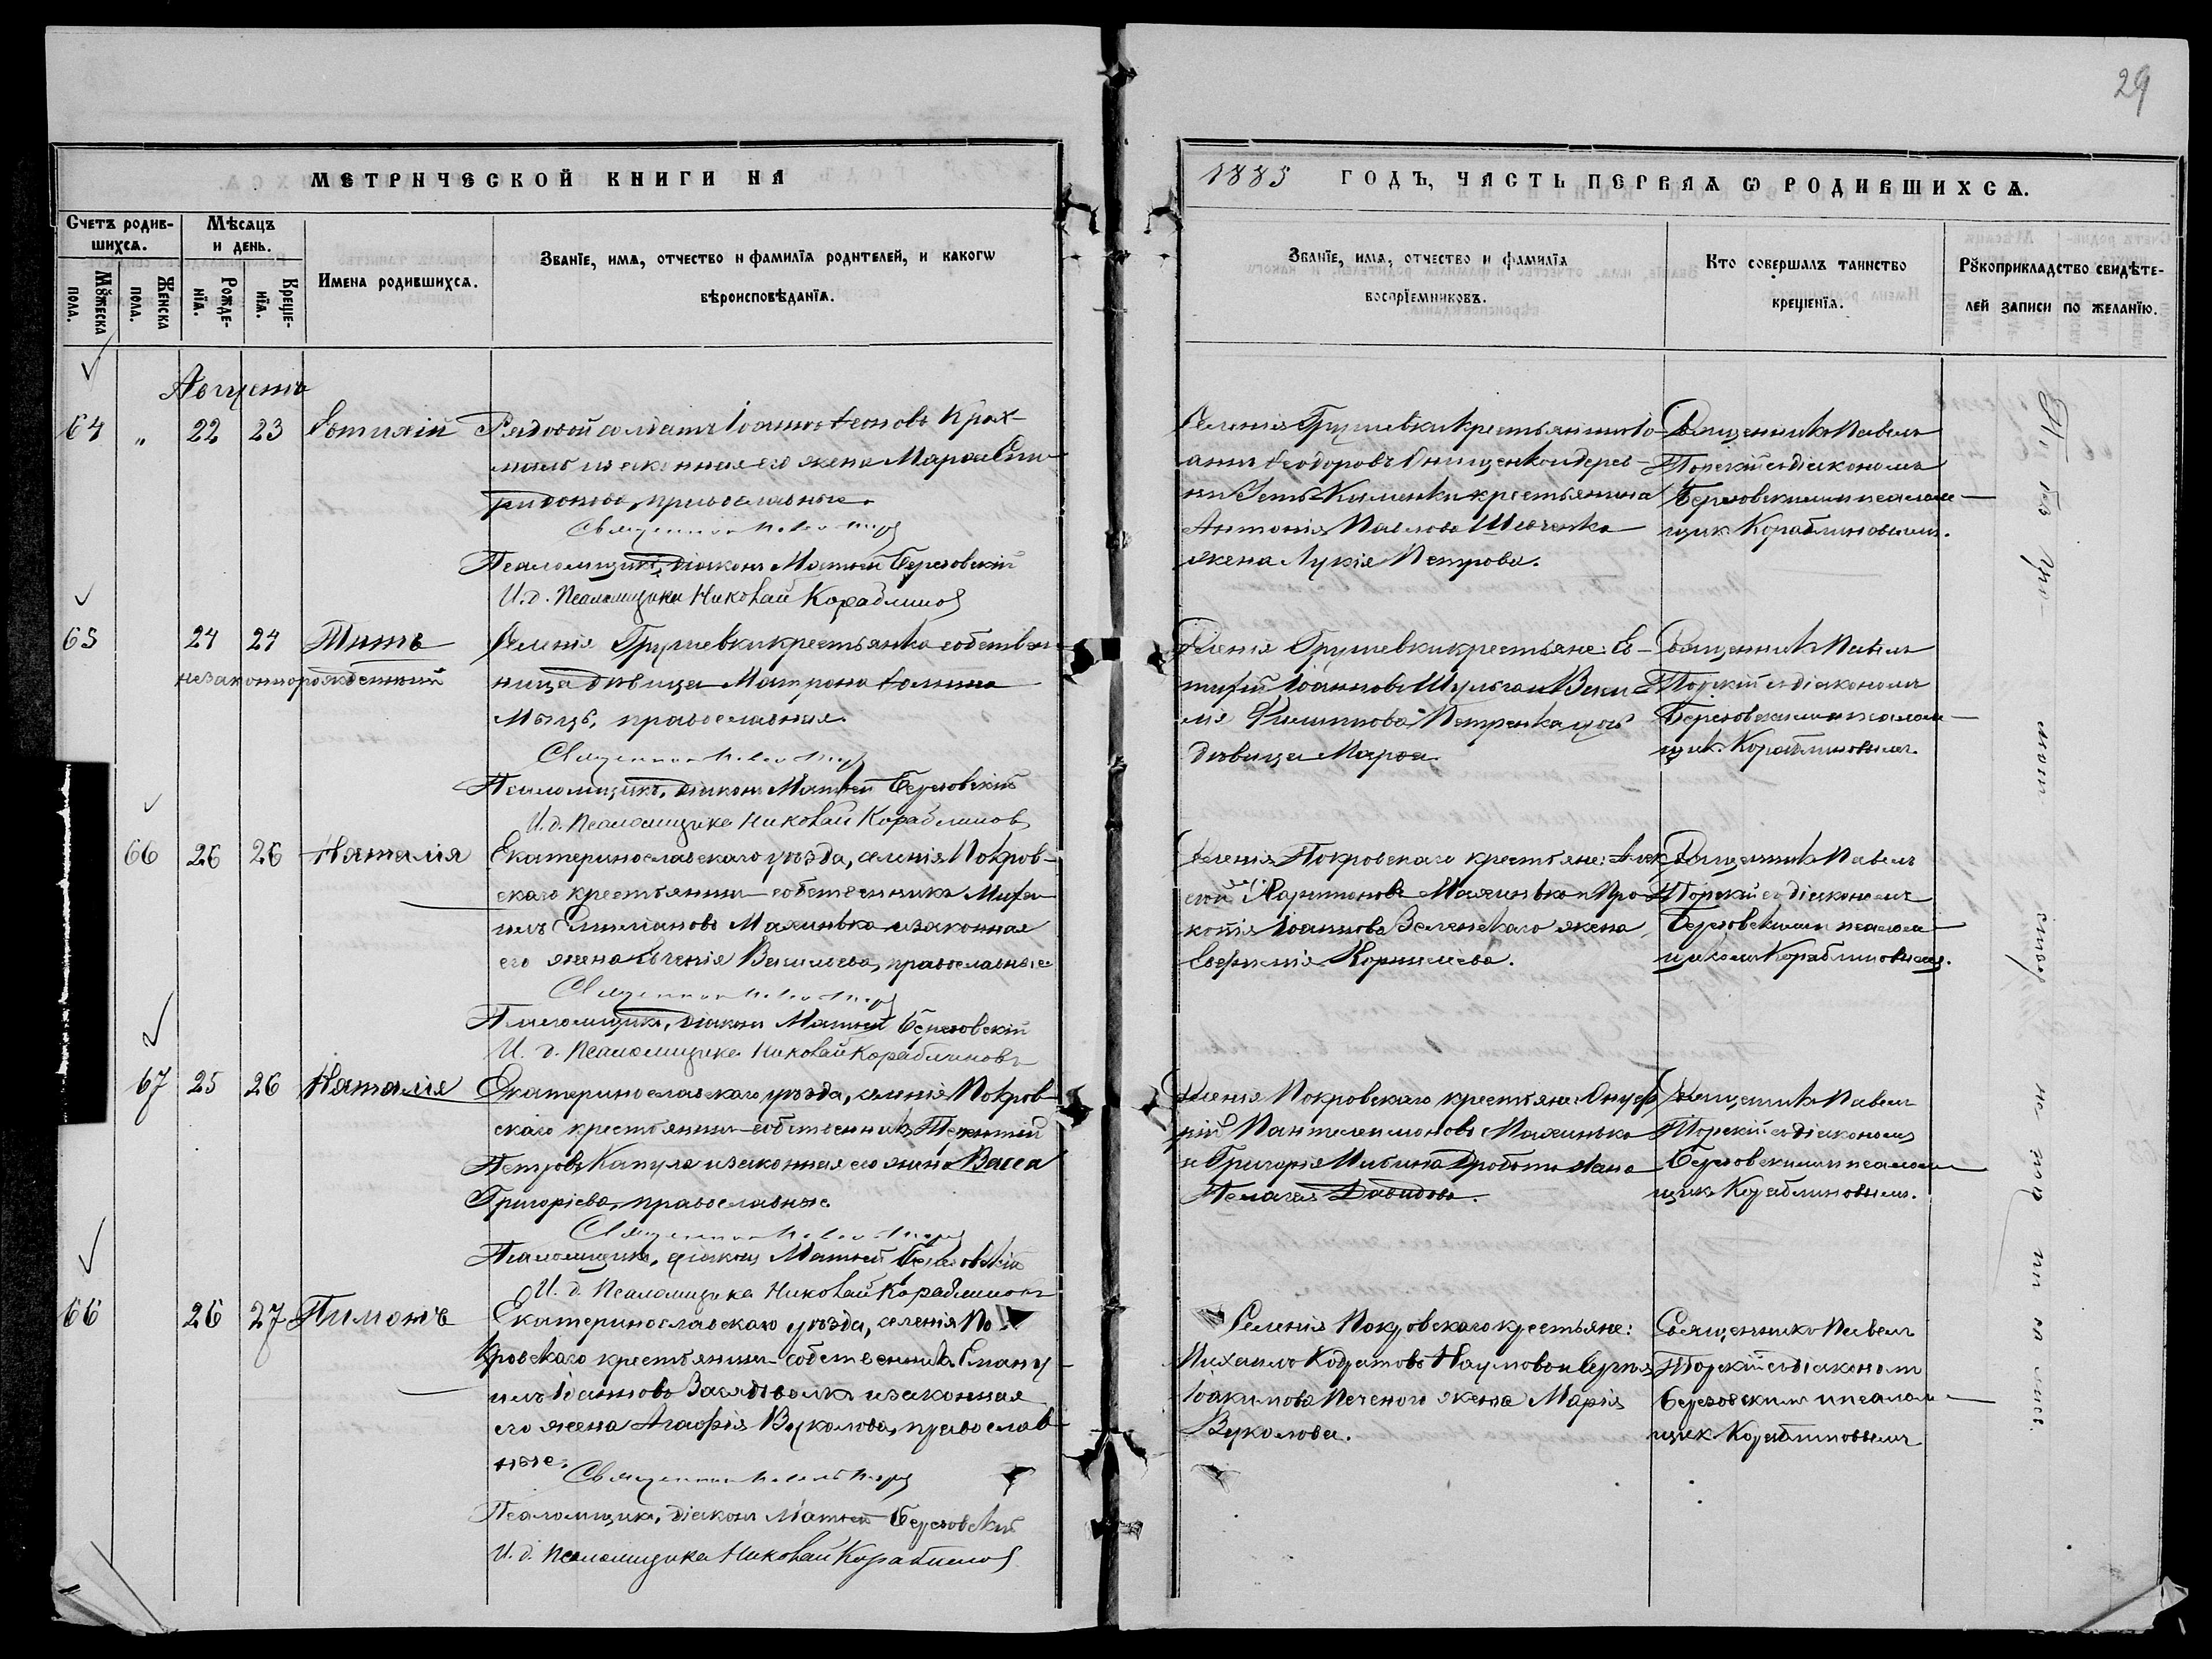 29
МЕТРИЧЕСКОЙ КНИГИ НА
1885 ГОДЪ, ЧАСТЬ ПЕРВАѦ Ѡ РОДИВШИХСѦ.
Счетъ родив-
шихсѧ.
Мѣсѧцъ
и день.
Мꙋжеска
пола.
Женска
пола.
Рожде-
нїѧ.
Креще-
нїѧ.
Имена родившихсѧ.
Званїе, имѧ, отчество и фамилїѧ родителей, и какогѡ
вѣроисповѣданїѧ.
Званїе, имѧ, отчество и фамилїѧ
воспрїемниковъ.
Кто совершалъ таинство
крещенїѧ.
Рꙋкоприкладство свидѣте-
лей записи по желанїю.
Августъ
64 " 22 23 Евтихій
Рядовой солдатъ Іоаннъ Ѳеоновъ Крах-
и законная его жена Марѳа Спи-
ридонова, православные.
Священникъ Павелъ
Псаломщикъ, діаконъ Матѳей Березовскій
И. д. Псаломщика Николай Кораблиновъ
Селенія Грушевки крестьянинъ Іо-
аннъ Ѳеодоровъ Онищенко и дерев-
ни Усть-Каменки крестьянина
Антонія Павлова Шевченка
жена Лукія Петрова.
Священникъ Павелъ
Торскій съ діакономъ
Березовскимъ и псалом-
щик. Кораблиновымъ.
65 24 24 Титъ
незаконнорожденный
Селенія Грушевки крестьянка собствен-
ница девица Матрона Ѳомина
православная.
Священникъ Павелъ
Псаломщикъ, діаконъ Матѳей Березовскій
И. д. Псаломщика Николай Кораблиновъ
Селенія Грушевки крестьяне: Ев-
Іоанновъ Шульга и Васи-
лія Филиппова Петренка дочь
дѣвица Марѳа.
Священникъ Павелъ
Торскій съ діакономъ
Березовскимъ и псалом-
щик. Кораблиновымъ.
66 26 26 Наталія
Екатеринославскаго уѣзда, селенія Покров-
скаго крестьянинъ-собственникъ Миха-
илъ Емиліановъ Махинько и законная
его жена Евгенія Васильева, православные
Священникъ Павелъ
Псаломщикъ, діаконъ Матѳей Березовскій
И. д. Псаломщика Николай Кораблиновъ
Селенія Покровскаго крестьяне: Алек-
сѣй Харитоновъ Махинько и Про-
копія Іоаннова Зеленскаго жена
Евфимія Корнилиева.
Священникъ Павелъ
Торскій съ діакономъ
Березовскимъ и псалом-
щикомъ Кораблиновымъ.
67 25 26 Наталія
Екатеринославскаго уѣзда, селенія Покров-
скаго крестьянинъ-собственникъ Терентій
Петровъ Капула и законная его жена Васса
Григоріева, православные.
Священникъ Павелъ
Псаломщикъ, діаконъ Матѳей Березовскій
И. д. Псаломщика Николай Кораблиновъ
Селенія Покровскаго крестьяне: Онуф-
рій Пантелеимоновъ Махинько
и Григорія жена
Пелагія Давидова.
Священникъ Павелъ
Торскій съ діакономъ
Березовскимъ и псалом-
щик. Кораблиновымъ.
66 26 27 Пименъ
Екатеринославскаго уѣзда, селенія По-
кровскаго крестьянинъ-собственникъ Еману-
илъ Іоанновъ и законная
его жена Агаѳія Вуколова, православ-
ные.
Священникъ Павелъ
Псаломщикъ, діаконъ Матѳей Березовскій
И. д. Псаломщика Николай Кораблиновъ
Селенія Покровскаго крестьяне:
Михаилъ Кодратовъ Наумовъ и Сергія
Іоакимова Печеного жена Марія
Вуколова.
Священникъ Павелъ
Торскій съ діакономъ
Березовскимъ и псалом-
щик. Кораблиновымъ